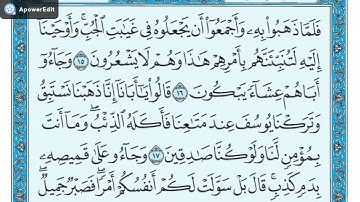 ApowerEdit
فَلَمَّا ذَهَبُوا۟ بِهِۦ وَأَجْمَعُوٓا۟ أَن يَجْعَلُوهُ فِى غَيَٰبَتِ ٱلْجُبِّ ۚ وَأَوْحَيْنَآ
إِلَيْهِ لَتُنَبِّئَنَّهُم بِأَمْرِهِمْ هَٰذَا وَهُمْ لَا يَشْعُرُونَ ١٥ وَجَآءُوٓ
أَبَاهُمْ عِشَآءً يَبْكُونَ ١٦ قَالُوا۟ يَٰٓأَبَانَآ إِنَّا ذَهَبْنَا نَسْتَبِقُ
وَتَرَكْنَا يُوسُفَ عِندَ مَتَٰعِنَا فَأَكَلَهُ ٱلذِّئْبُ ۖ وَمَآ أَنتَ
بِمُؤْمِنٍ لَّنَا وَلَوْ كُنَّا صَٰدِقِينَ ١٧ وَجَآءُو عَلَىٰ قَمِيصِهِۦ
بِدَمٍ كَذِبٍ ۚ قَالَ بَلْ سَوَّلَتْ لَكُمْ أَنفُسُكُمْ أَمْرًا ۖ فَصَبْرٌ جَمِيلٌ ۖ